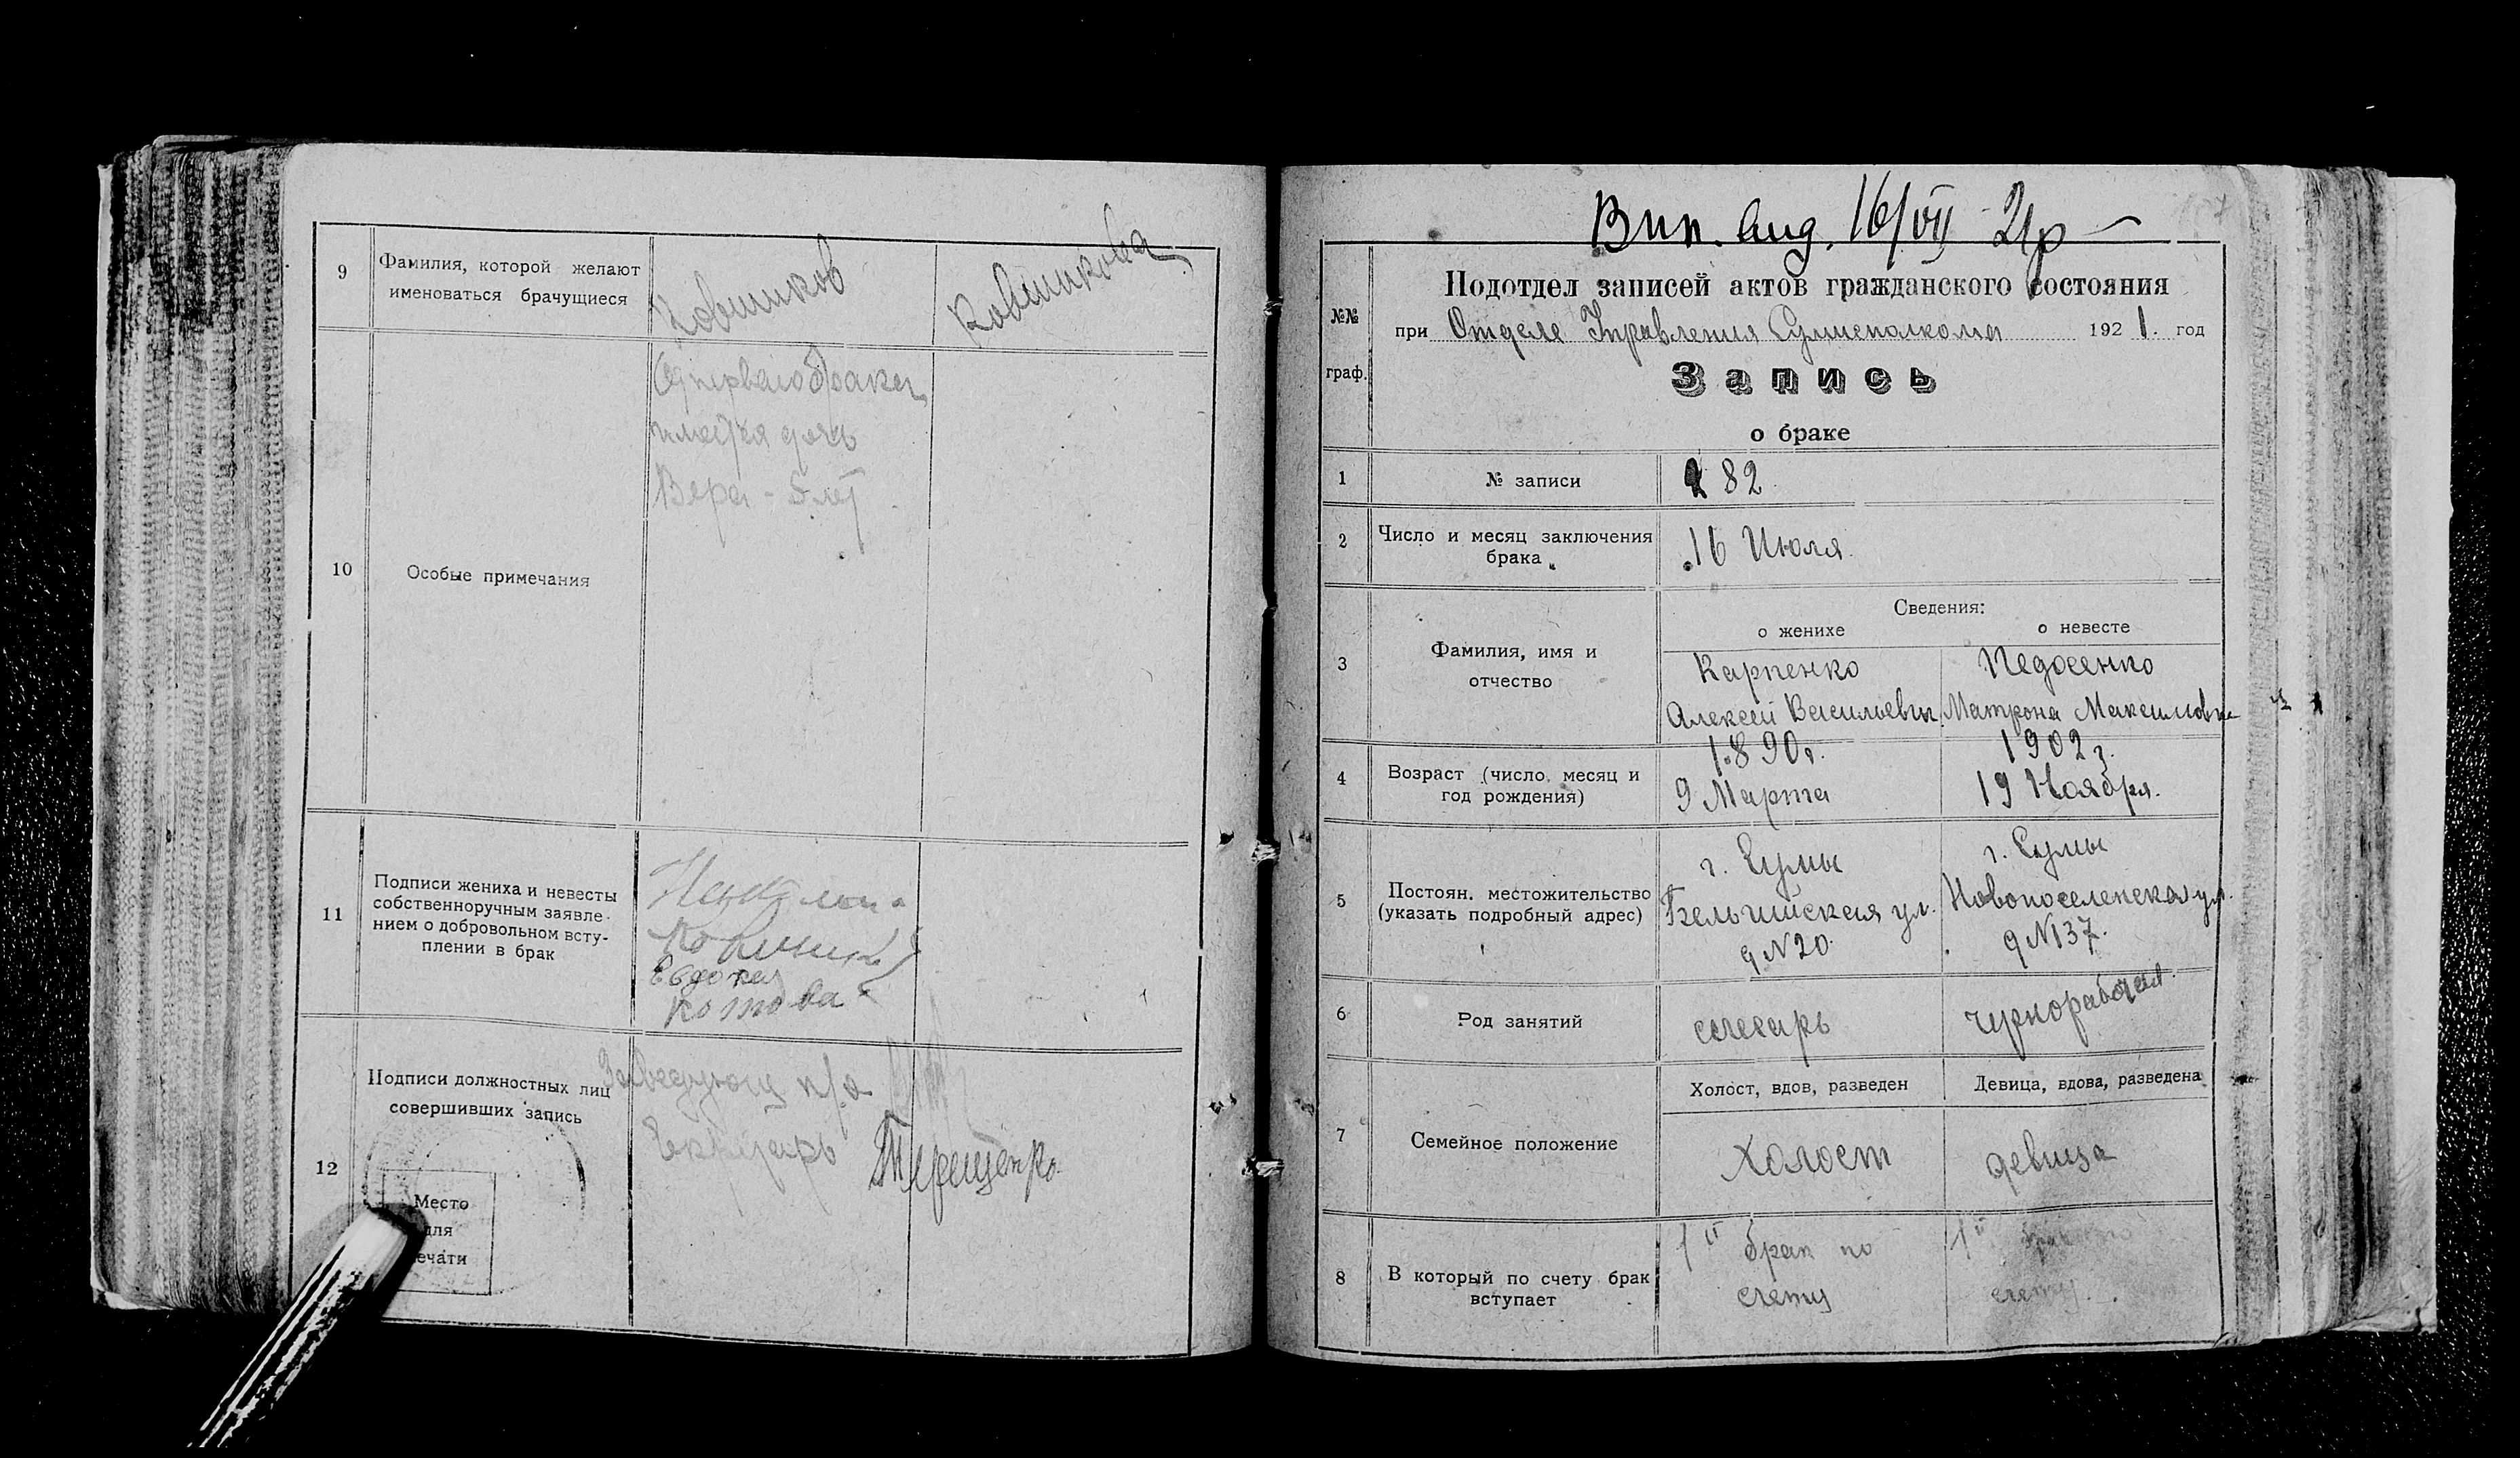 9
Фамилия, которой желают
именоваться брачущиеся
Ковшиков
Ковшикова
10
Особые примечания
От первого брака
имеется дочь
Вера - 5 лет
11
Подписи жениха и невесты
собственноручным заявле-
нием о добровольном всту-
плении в брак
Ковшиков
Евдокия
Котова
12
Подписи должностных лиц
совершивших запись
Заведующ п/о
Секретарь Терещенко
Место
для
ечати
Вип. вид. 16/VII 21р
№№
граф.
Подотдел записей актов гражданского состояния
при Отделе Управления Сумисполкома 1921. год
Запись
о браке
1
№ записи
282
2
Число и месяц заключения
брака
16 Июля
3
Фамилия, имя и
отчество
Сведения:
о женихе
о невесте
Карпенко
Алексей Васильевич
Недосенко
Матрона Максимовна
4
Возраст (число, месяц и
год рождения)
1890г.
9 Марта
1902 г.
19 Ноября.
5
Постоян. местожительство
(указать подробный адрес)
г. Сумы
Бельгийская ул.
д N 20.
г. Сумы
Новопоселенская ул.
д N 137.
6
Род занятий
слесарь
чернорабочая
7
Семейное положение
Холост, вдов, разведен
Девица, вдова, разведена
Холост
девица
8
В который по счету брак
вступает
1й брак по
счету
1й
счету.